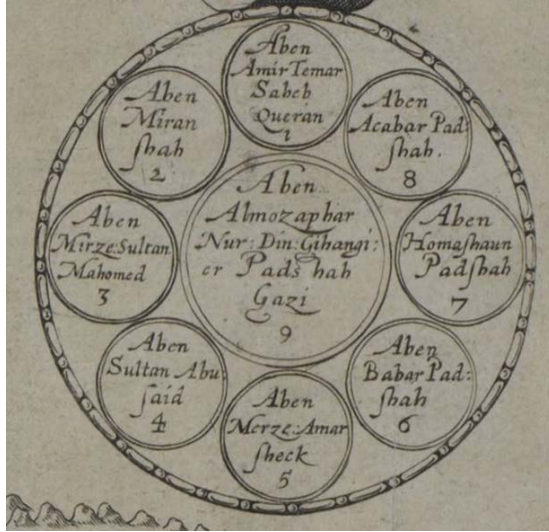 Aben
Amir Temar
Saheb
Queran
1
Aben
Miran
ſhah
2
Aben
Mirze:Sultan
Mahomed
3
Aben
Sultan Abu
ſaid
4
Aben
Merze:Amar
ſheck
5
Aben
Babar Pad:
ſhah
6
Aben
Homaſhaun
Padſhah
7
Aben
Acabar Pad:
ſhah.
8
Aben
Almozaphar
Nur: Din: Gihangi:
er Padſhah
Gazi
9